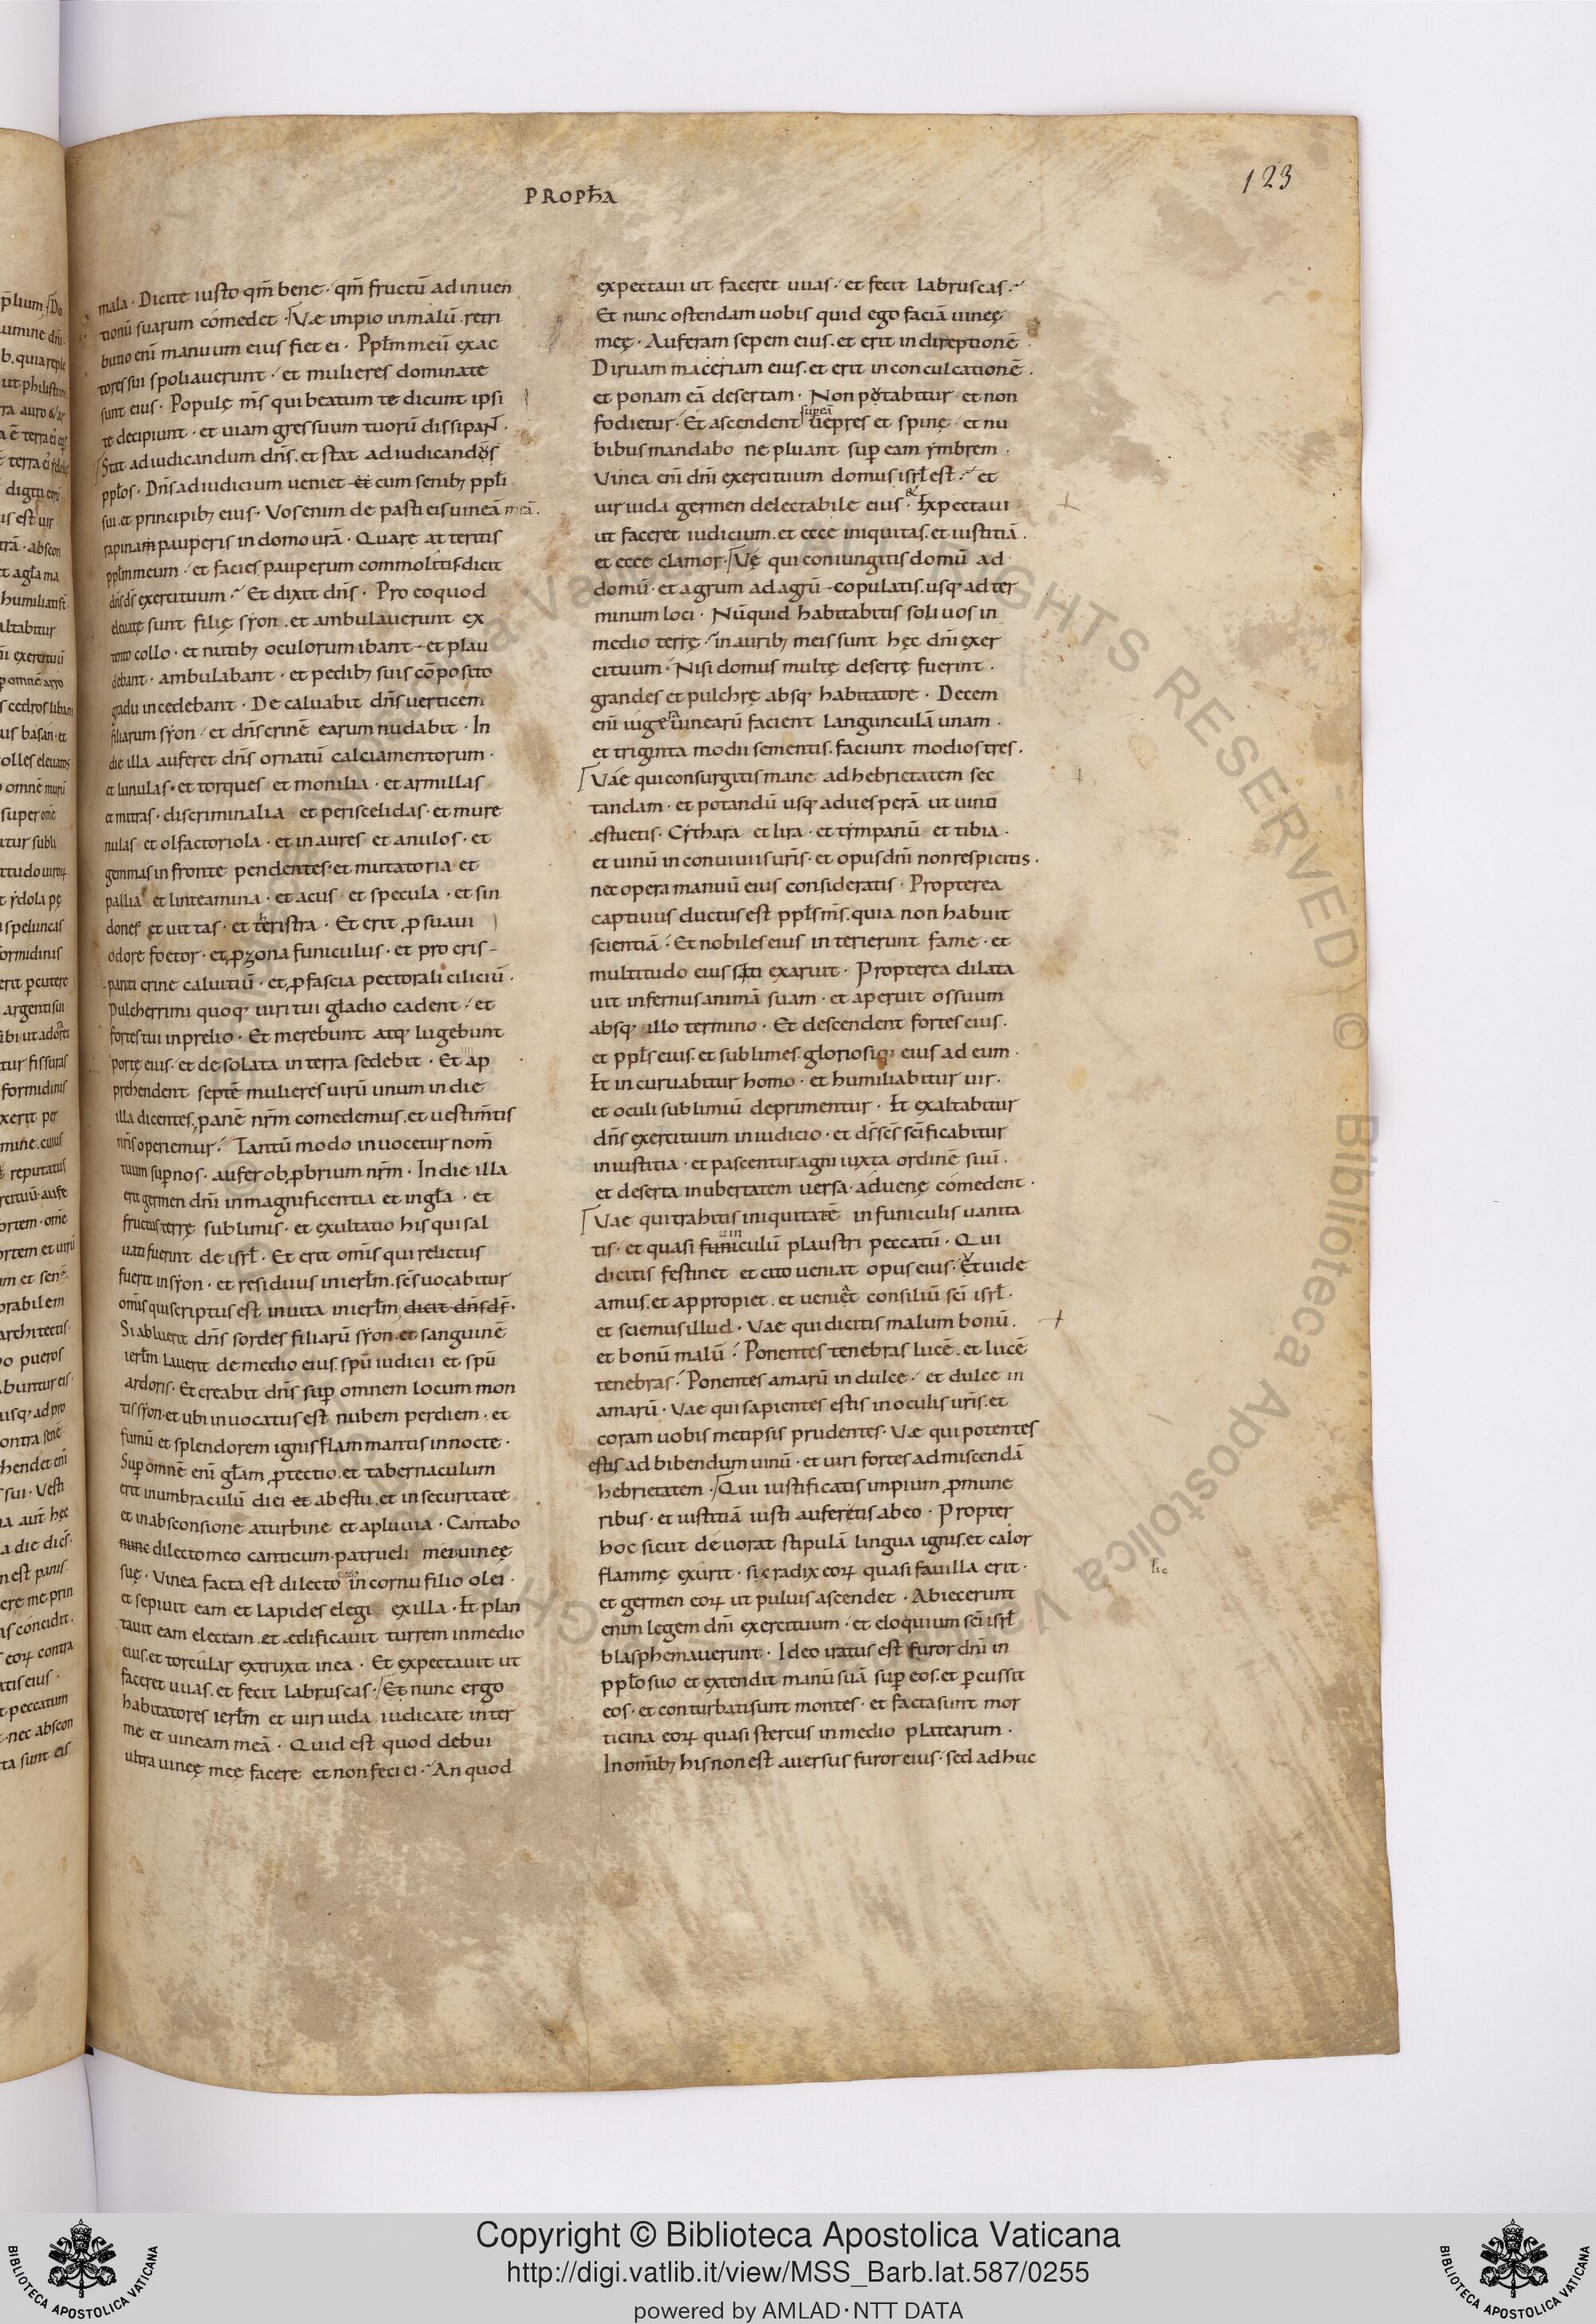 PROPHA
123
mala · Dicite iusto qm̄ bene · qm̄ fructū ad inuen
tionū suarum comedet · Vae impio in malū · retri
butio enī manuum eius fiet ei · Pplm̄ meū exac
tores sui spoliauerunt · et mulieres dominate
sunt eius · Populę m̄s qui beatum te dicunt ipsi
te decipiunt · et uiam gressuum tuorū dissipaɴ̄t ·
Stat ad iudicandum dn̄s · et stat ad iudicandos
pplos · Dn̄s ad iudicium ueniet cum senibꝫ ppli
sui · et principibꝫ eius · Vos enim depasti eis uineā meā ·
rapinam pauperis in domo urā · Quare atteritis
pplm̄ meum · et facies pauperum commolitis dicit
dn̄s ds̄ exercituum · Et dixit dn̄s · Pro eo quod
eleuatę sunt filię sÿon · et ambulauerunt ex
tento collo · et nutibꝫ oculorum ibant · et plau
debant · ambulabant · et pedibꝫ suis cōposito
gradu incedebant · Decaluabit dn̄s uerticem
filiarum sÿon · et dn̄s crinē earum nudabit · In
die illa auferet dn̄s ornatū calciamentorum ·
et lunulas · et torques et monilia · et armillas
et mitras · discriminalia et periscelidas · et mure
nulas et olfactoriola · et inaures et anulos · et
gemmas in fronte pendentes · et mutatoria et
pallia et linteamina · et acus et specula · et sin
dones et uittas · et teristra · Et erit ꝓ suaui
odore foetor · et ꝓ zona funiculus · et pro cris
panti crine caluitiū · et ꝓ fascia pectorali ciliciū ·
Pulcherrimi quoqꝫ uiri tui gladio cadent · et
fortes tui in prelio · Et merebunt atqꝫ lugebunt
portę eius · et desolata in terra sedebit · Et ap
prehendent septē mulieres uirū unum in die
illa dicentes, panē nrm̄ comedemus · et uestim̄tis
nrīs operiemur · Tantū modo inuocetur nom̄
tuum sup̄ nos · aufer obꝓbrium nrm̄ · In die illa
erit germen dn̄i in magnificentia et in gla · et
fructus terrę sublimis · et exultatio his qui sal
uati fuerint de isrl · Et erit om̄is qui relictus
fuerit in sÿon · et residuus in ierlm̄ · sc̄s uocabitur
om̄is qui scriptus est in uita in ierlm̄ dicit dn̄s ds̄ ·
Si abluerit dn̄s sordes filiarū sÿon · et sanguinē
ierlm̄ lauerit de medio eius · spū iudicii et spū
ardoris · Et creabit dn̄s sup̄ omnem locum mon
tis sÿon · et ubi inuocatus est nubem per diem · et
fumū et splendorem ignis flammantis in nocte ·
Sup̄ omnē enī glam ꝓtectio · et tabernaculum
erit in umbraculū diei et ab estu · et in securitate
et in absconsione a turbine et a pluuia · Cantabo
nunc dilecto meo canticum · patrueli mei uineę
suę · Vinea facta est dilecto in cornu filio olei ·
et sepiuit eam et lapides elegi ex illa · Et plan
tauit eam electam · et ędificauit turrem in medio
eius · et torcular extruxit in ea · Et expectauit ut
faceret uuas · et fecit labruscas · Et nunc ergo
habitatores ierlm̄ et uiri iuda iudicate inter
me et uineam meā · Quid est quod debui
ultra uineę meę facere et non feci ei · An quod
expectaui ut faceret uuas · et fecit labruscas ·
Et nunc ostendam uobis quid ego faciā uineę
meę · Auferam sepem eius · et erit in direptionē ·
Diruam maceriam eius · et erit in conculcationē ·
et ponam eā desertam · Non potabitur et non
fodietur · Et ascendent supeā uepres et spinę et nu
bibus mandabo ne pluant sup̄ eam ÿmbrem ·
Vinea enī dn̄i exercituum domus isrl est · et
uir iuda germen delectabile eius · Et expectaui
ut faceret iudicium · et ecce iniquitas · et iustitiā ·
et ecce clamor · Vę qui coniungitis domū ad
domū · et agrum ad agrū · copulatis · usqꝫ ad ter
minum loci · Nūquid habitabitis soli uos in
medio terrę · in auribꝫ meis sunt hęc dn̄i exer
cituum · Nisi domus multę desertę fuerint ·
grandes et pulchrę absqꝫ habitatore · Decem
enī iugera uinearū facient langunculā unam ·
et triginta modii sementis · faciunt modios tres ·
Vae qui consurgitis mane ad hebrietatem sec
tandam · et potandū usqꝫ ad uesperā ut uino
ęstuetis · Cÿthara et lira · et tÿmpanū et tibia ·
et uinū in conuiuiis urīs · et opus dn̄i non respicitis ·
nec opera manuū eius consideratis · Propterea
captiuus ductus est ppls m̄s · quia non habuit
scientiā · Et nobiles eius interierunt fame · et
multitudo eius siti exaruit · Propterea dilata
uit infernus animā suam · et aperuit os suum
absqꝫ ullo termino · Et descendent fortes eius ·
et ppls eius · et sublimes · gloriosiqꝫ eius ad eum ·
Et incuruabitur homo · et humiliabitur uir ·
et oculi sublimiū deprimentur · Et exaltabitur
dn̄s exercituum in iudicio · et ds̄ sc̄s sc̄ificabitur
in iustitia · et pascentur agni iuxta ordinē suū ·
et deserta in ubertatem uersa · aduenę comedent ·
Vae qui trahitis iniquitatē in funiculis uanita
tis · et quasi funiculū plaustri peccatū · Qui
dicitis festinet et cito ueniat opus eius · Et uide
amus · et appropiet · et ueniet consiliū sc̄i isrl ·
et sciemus illud · Vae qui dicitis malum bonū ·
et bonū malū · Ponentes tenebras lucē · et lucē
tenebras · Ponentes amarū in dulce · et dulce in
amarū · Vae qui sapientes estis in oculis urīs · et
coram uobis metipsis prudentes · Vae qui potentes
estis ad bibendum uinū · et uiri fortes ad miscendā
hebrietatem · Qui iustificatis impium ꝓ mune
ribus · et iustitiā iusti auferetis ab eo · Propter
hoc sicut deuorat stipulā lingua ignis · et calor
flammę exurit · sic radix eoꝝ quasi fauilla erit ·
et germen eoꝝ ut puluis ascendet · Abiecerunt
enim legem dn̄i exercituum · et eloquium sc̄i isrl
blasphemauerunt · Ideo iratus est furor dn̄i in
pplo suo et extendit manū suā sup̄ eos · et ꝑcussit
eos · et conturbati sunt montes · et facta sunt mor
ticina eoꝝ quasi stercus in medio platearum ·
In om̄ibꝫ his non est auersus furor eius · sed adhuc
Copyright © Biblioteca Apostolica Vaticana
http://digi.vatlib.it/view/MSS_Barb.lat.587/0255
powered by AMLAD·NTT DATA
BIBLIOTECA APOSTOLICA VATICANA
BIBLIOTECA APOSTOLICA VATICANA